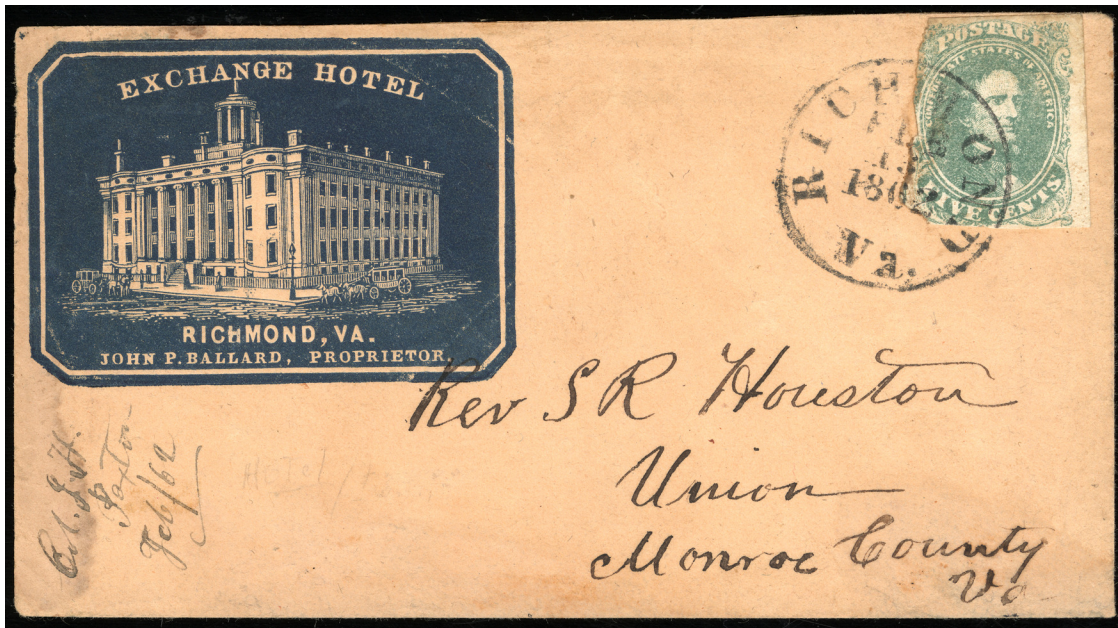 EXCHANGE HOTEL
RICHMOND, VA.
JOHN P. BALLARD, PROPRIETOR.
POSTAGE
CONFEDERATE STATES OF AMERICA
FIVE CENTS
RICHMOND
1862
Va.
Rev S R Houston
Union
Monroe County
Va
Col. J. H.
Paxton
Feb/62